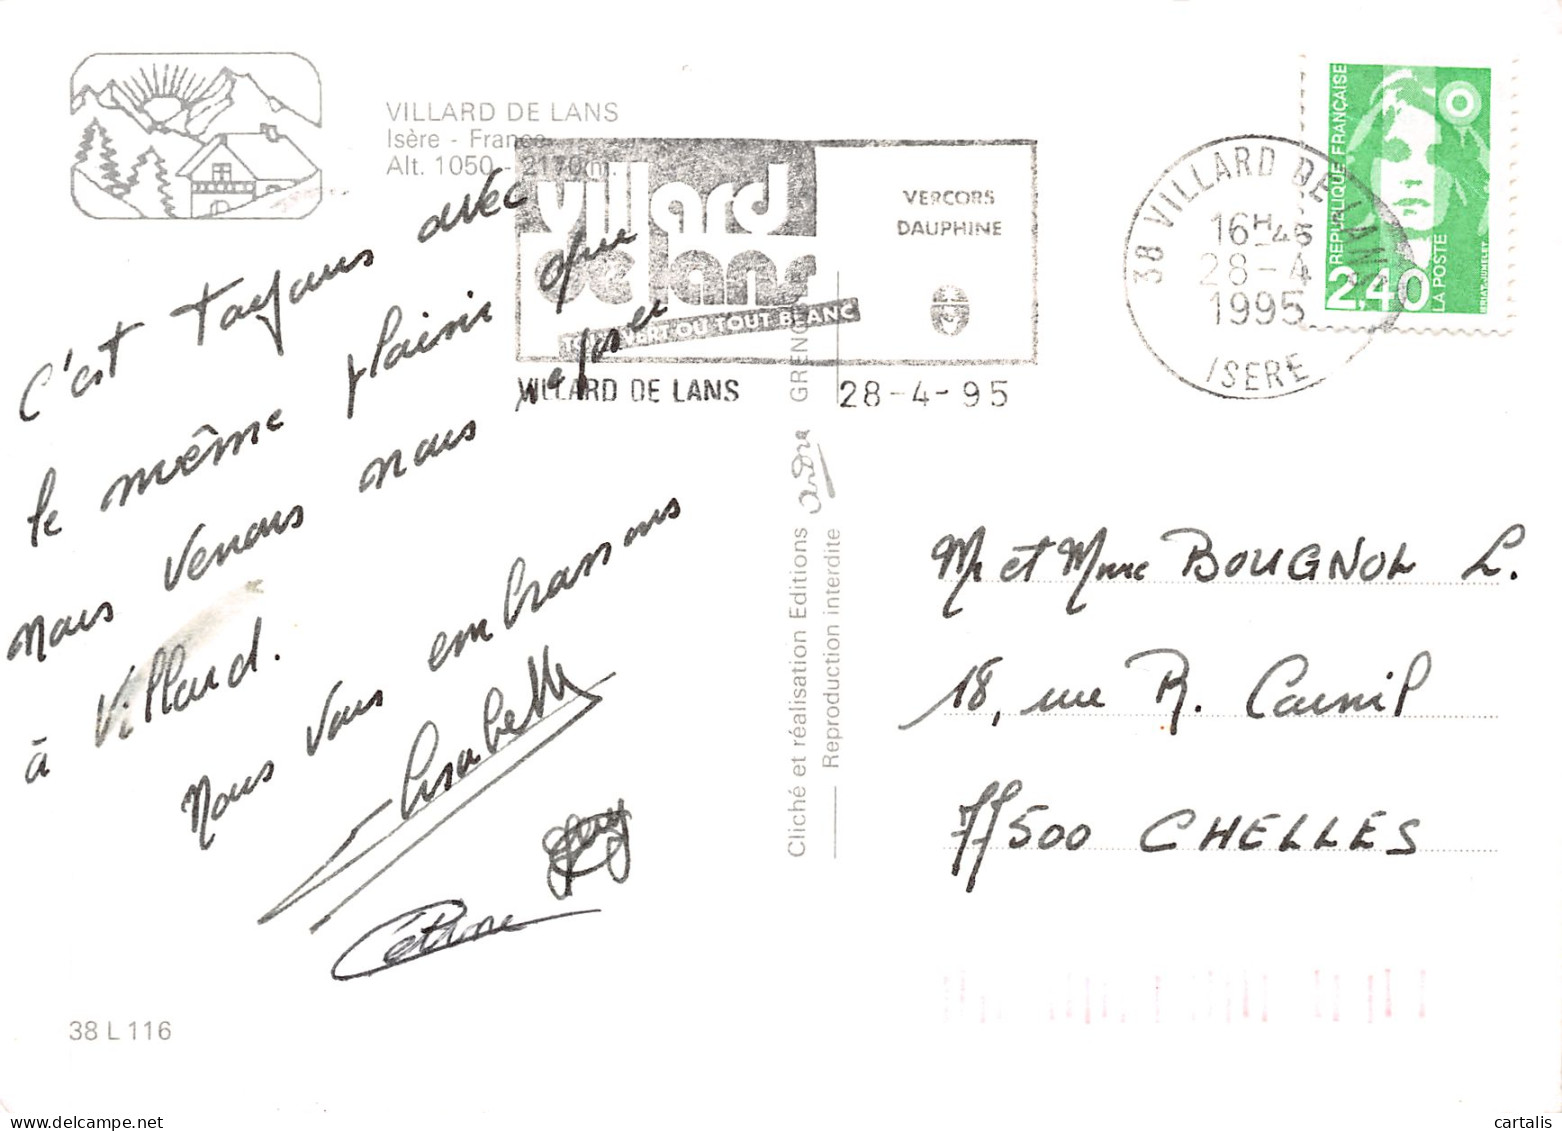 VILLARD DE LANS
Isère - France
Alt. 1050 - 2170 m.
villard
de lans
TOUT VERT OU TOUT BLANC
VERCORS
DAUPHINE
VILLARD DE LANS 28-4-95
38 VILLARD DE LANS
16H45
28-4
1995
ISERE
REPUBLIQUE FRANÇAISE
2,40
LA POSTE
C'est toujours avec
le même plaisir que
nous venons nous reposer
à Villard.
Nous vous embrassons
Elisabeth
Céline
Cliché et réalisation Editions andré GRENOBLE
Reproduction interdite
Mr et Mme BOUGNOL L.
18, rue R. Carnil
77500 CHELLES
38 L 116
cartalis
delcampe.net